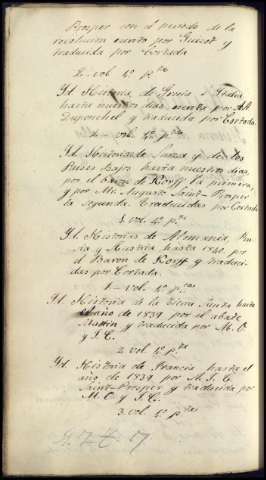 Prosper con el periodo de la
revolucion escrito por Guizot y
traducida por Cortada
2. vol. 4º pta
Id. Historia de Persia é India
hasta nuestros dias escrita por
y traducida por Cortada.
vol. 4º pta
Id. Historia de Suiza y de los
Paises Bajos hasta nuestros dias,
por el baron de la primera,
y por Mr. Augusto Saint Prosper
la segunda. Traducidas por Cortada
1. vol. 4º pta
Id. Historia de Alemania,
y Austria hasta 1838 por el
Baron de y traduci-
das por Cortada.
1 vol. 4º pta
Id. Historia de la Tierra Santa hasta
el año de 1839 por el abate
Martin y traducida por M. O.
y J. C.
2. vol. 4º pta
Id. Historia de Francia hasta el
año de 1839 por M. J. C.
Saint-Prosper y traducida por
M. O. y J. C.
3. vol. 4º pta